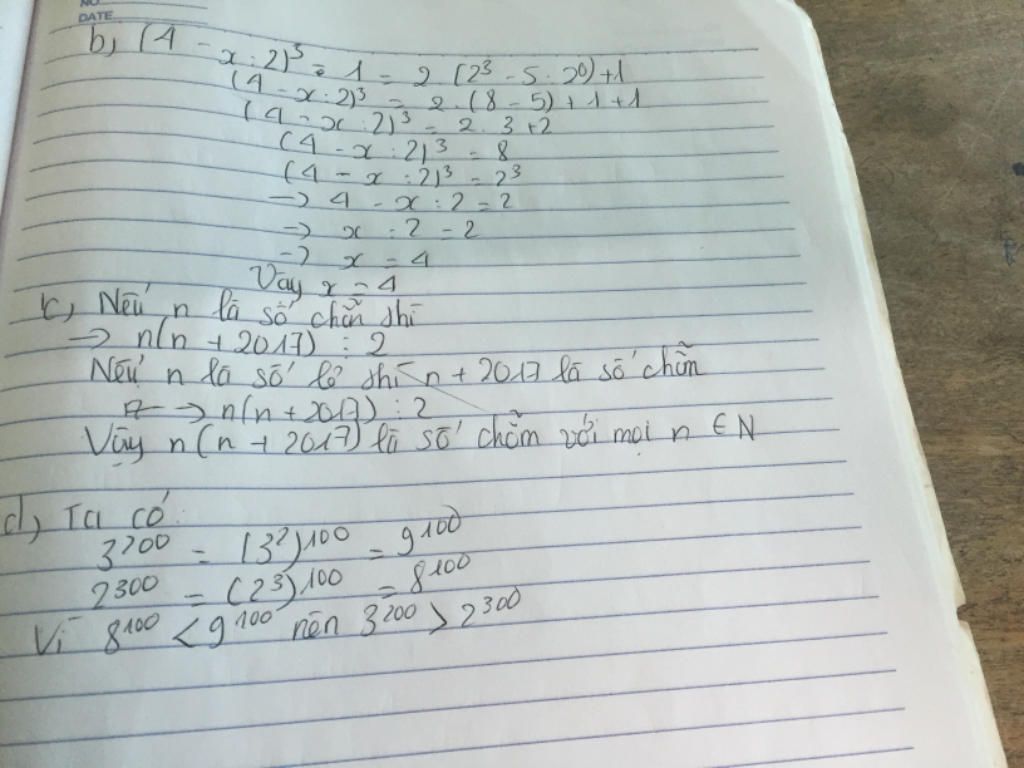 NO
DATE
b, (4 - x : 2)³ - 1 = 2 (2³ - 5 . 2⁰) + 1
(4 - x : 2)³ = 2 . (8 - 5) + 1 + 1
(4 - x : 2)³ = 2 . 3 + 2
(4 - x : 2)³ = 8
(4 - x : 2)³ = 2³
→ 4 - x : 2 = 2
→ x : 2 = 2
→ x = 4
Vậy x = 4
c, Nếu n là số chẵn thì
→ n(n + 2017) ⋮ 2
Nếu n là số lẻ thì n + 2017 là số chẵn
→ n(n + 2017) ⋮ 2
Vậy n(n + 2017) là số chẵn với mọi n ∈ N
d, Ta có:
3²⁰⁰ = (3²)¹⁰⁰ = 9¹⁰⁰
2³⁰⁰ = (2³)¹⁰⁰ = 8¹⁰⁰
Vì 8¹⁰⁰ < 9¹⁰⁰ nên 3²⁰⁰ > 2³⁰⁰